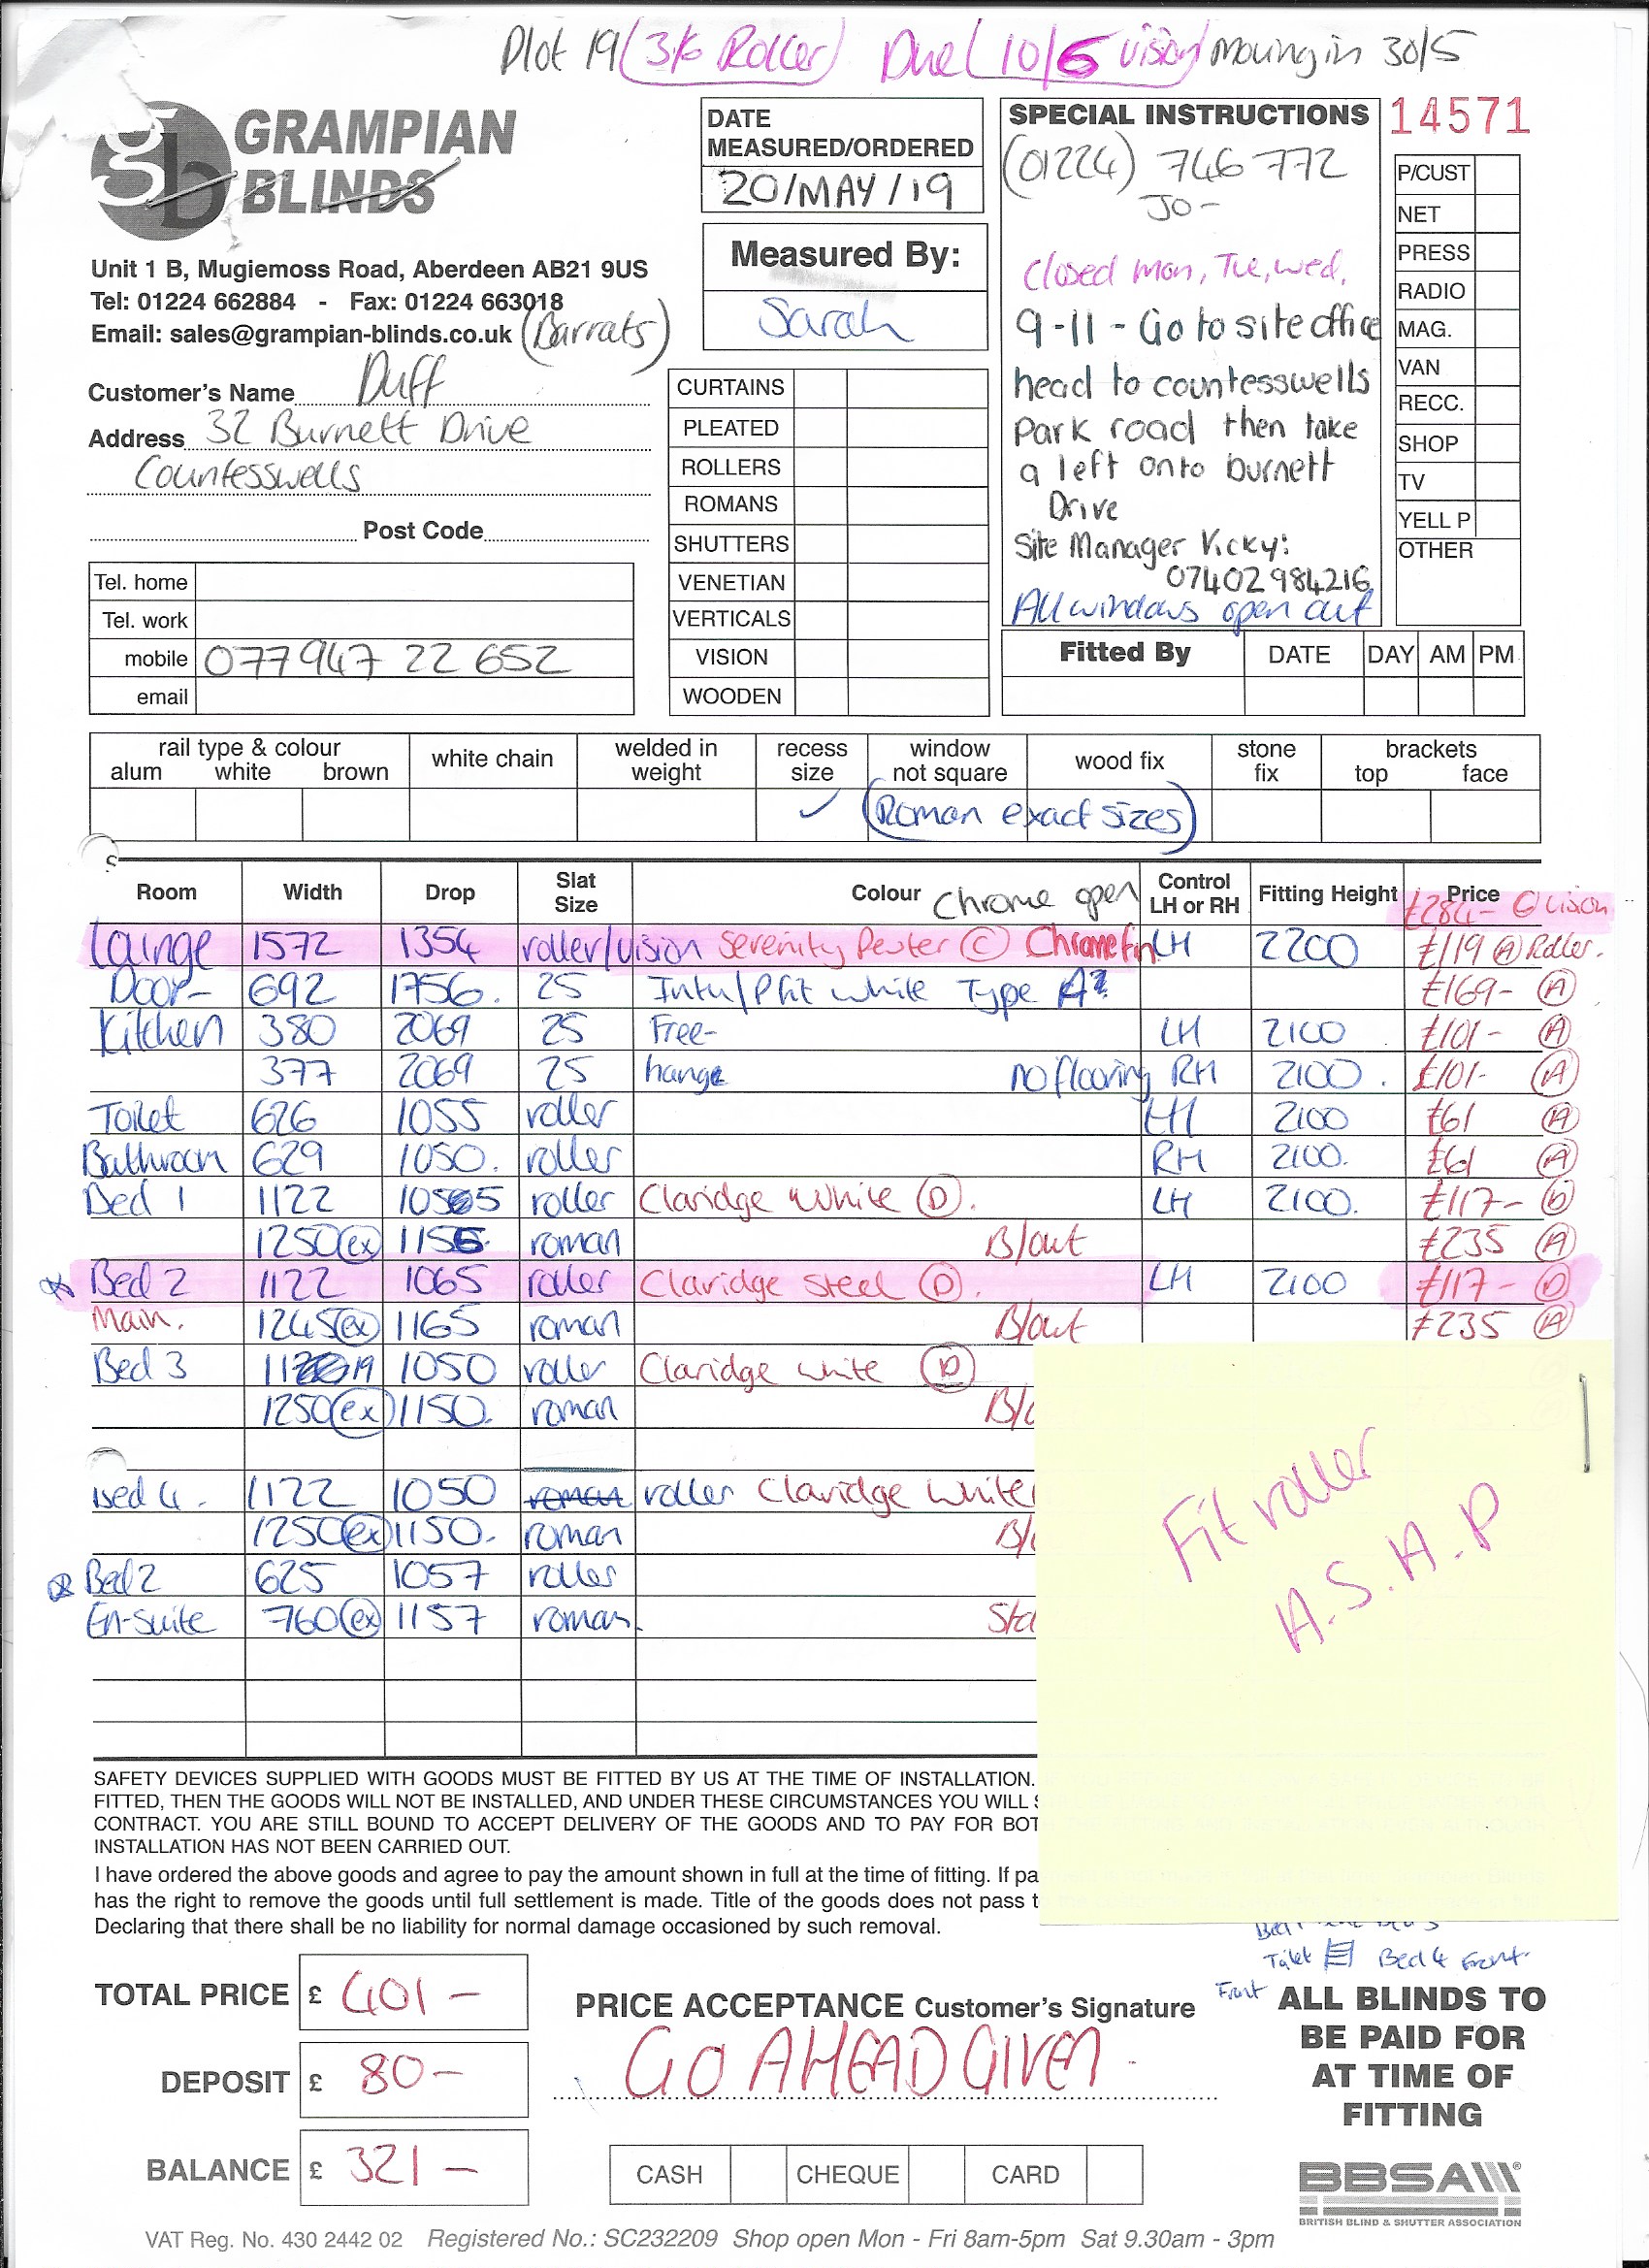 Plot 19 (3/6 Roller) Due (10/6 vision) moving in 30/5
GRAMPIAN
BLINDS
Unit 1 B, Mugiemoss Road, Aberdeen AB21 9US
Tel: 01224 662884 - Fax: 01224 663018
Email: sales@grampian-blinds.co.uk (Barrats)
Customer's Name Duff
Address 32 Burnett Drive
Countesswells
Post Code
Tel. home
Tel. work
mobile 077947 22 652
email
DATE
MEASURED/ORDERED
20/MAY/19
Measured By:
Sarah
CURTAINS
PLEATED
ROLLERS
ROMANS
SHUTTERS
VENETIAN
VERTICALS
VISION
WOODEN
SPECIAL INSTRUCTIONS
(01224) 746 772
JO-
Closed mon, Tue, wed,
9-11 - Go to site office
head to countesswells
Park road then take
a left onto burnett
Drive
Site Manager Vicky:
07402984216
All windows open out
14571
P/CUST
NET
PRESS
RADIO
MAG.
VAN
RECC.
SHOP
TV
YELL P
OTHER
Fitted By DATE DAY AM PM
rail type & colour
alum white brown
white chain
welded in
weight
recess
size
window
not square
wood fix
stone
fix
brackets
top face
✓ (Roman exact sizes)
Room Width Drop Slat Size Colour Chrome open Control LH or RH Fitting Height Price £284- C Vision
Lounge 1572 1354 roller/vision Serenity Pewter (C) Chrome fin LH 2200 £119 (A) Roller.
Door- 692 1756. 25 Intu/Pfit white Type A? £169- (A)
Kitchen 380 2069 25 Free- LH 2100 £101- (A)
377 2069 25 hange no flooring RH 2100. £101- (A)
Toilet 626 1055 roller LH 2100 £61 (A)
Bathroom 629 1050. roller RH 2100. £61 (A)
Bed 1 1122 1055 roller Claridge White (D). LH 2100. £117- (D)
1250(ex) 1156 roman B/out £235 (A)
Bed 2 1122 1065 roller Claridge Steel (D). LH 2100 £117- (D)
Main. 1245(ex) 1165 roman B/out £235 (A)
Bed 3 1119 1050 roller Claridge white (D)
1250(ex) 1150. roman
Bed 4. 1122 1050 roman roller Claridge White
1250(ex) 1150. roman
Bed 2 625 1057 roller
En-Suite 760(ex) 1157 roman.
Fit roller
A.S.A.P
SAFETY DEVICES SUPPLIED WITH GOODS MUST BE FITTED BY US AT THE TIME OF INSTALLATION.
FITTED, THEN THE GOODS WILL NOT BE INSTALLED, AND UNDER THESE CIRCUMSTANCES YOU WILL
CONTRACT. YOU ARE STILL BOUND TO ACCEPT DELIVERY OF THE GOODS AND TO PAY FOR BOT
INSTALLATION HAS NOT BEEN CARRIED OUT.
I have ordered the above goods and agree to pay the amount shown in full at the time of fitting. If pa
has the right to remove the goods until full settlement is made. Title of the goods does not pass t
Declaring that there shall be no liability for normal damage occasioned by such removal.
Toilet Bed 4 Front
Front
TOTAL PRICE £ 401-
DEPOSIT £ 80-
BALANCE £ 321-
PRICE ACCEPTANCE Customer's Signature
GO AHEAD GIVEN.
CASH CHEQUE CARD
ALL BLINDS TO
BE PAID FOR
AT TIME OF
FITTING
BBSA
BRITISH BLIND & SHUTTER ASSOCIATION
VAT Reg. No. 430 2442 02 Registered No.: SC232209 Shop open Mon - Fri 8am-5pm Sat 9.30am - 3pm